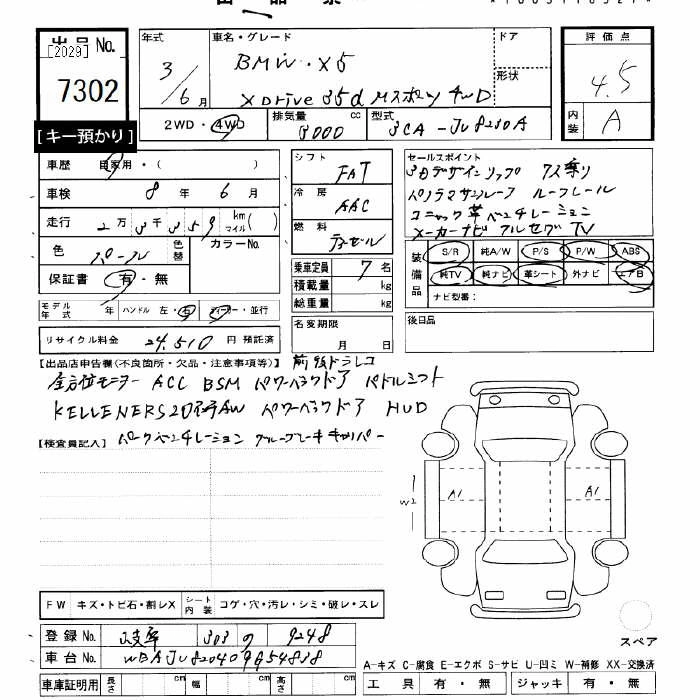 出品票
出品 No.
[2029]
7302
[キー預かり]
年式
3/6月
車名・グレード
BMW・X5
XDrive 35d Mスポーツ 4WD
ドア
形状
評価点
4.5
内装
A
2WD・4WD
排気量
3000 cc
型式
3CA-JV8230A
車歴
自家用・( )
車検
8年 6月
走行
2万3千359 km マイル( )
色
パール
色替
カラーNo.
保証書
有・無
シフト
FAT
冷房
AAC
燃料
ディーゼル
乗車定員
7名
積載量
kg
総重量
kg
名変期限
月 日
セールスポイント
3Dデザインリップ 7人乗り
パノラマサンルーフ ルーフレール
コニャック革 ベンチレーション
メーカーナビ フルセグTV
装備品
S/R 純A/W P/S P/W ABS
純TV 純ナビ 革シート 外ナビ エアB
ナビ型番:
後日品
モデル年式
年 ハンドル 左・右 ディーラー・並行
リサイクル料金
24,510 円 預託済
【出品店申告欄(不良箇所・欠品・注意事項等)】 前後ドラレコ
全方位モニター ACC BSM パワーバックドア パドルシフト
KELLENERS 20吋AW パワーバックドア HUD
【検査員記入】
W2
A1
A1
FW
キズ・トビ石・割レX
シート内装
コゲ・穴・汚レ・シミ・破レ・スレ
スペア
登録 No.
岐阜 303 9248
車台 No.
車庫証明用
長さ cm
幅 cm
高さ cm
A-キズ C-腐食 E-エクボ S-サビ U-凹ミ W-補修 XX-交換済
工具 有・無
ジャッキ 有・無